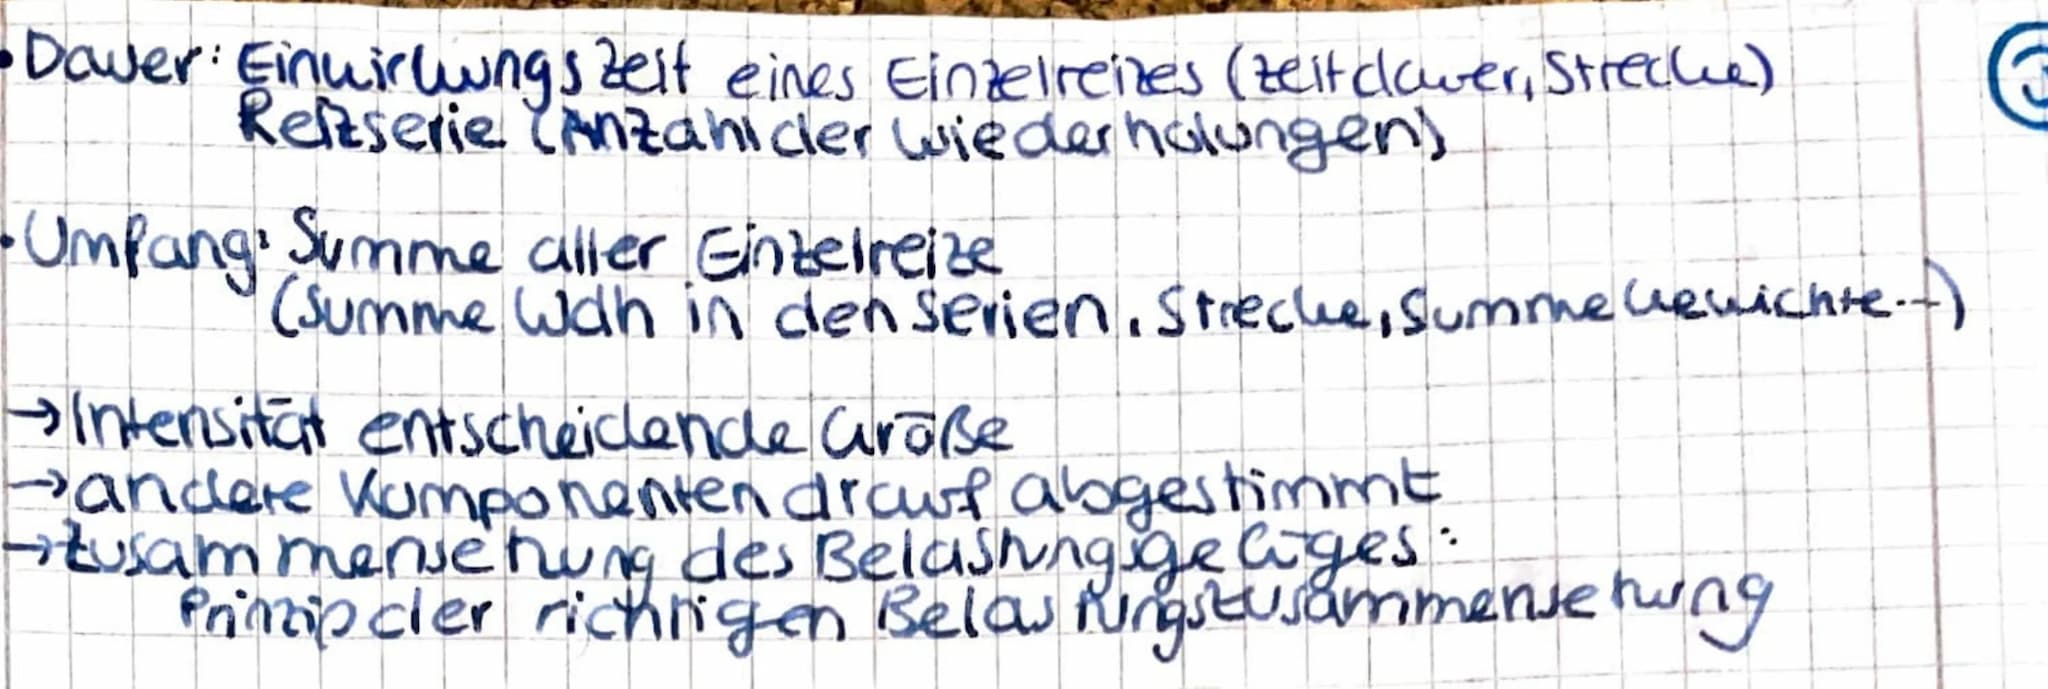 • Dauer: Einwirkungszeit eines Einzelreizes (Zeitdauer, Strecke)
Reizserie (Anzahl der Wiederholungen)
• Umfang: Summe aller Einzelreize
(Summe Wdh in den Serien, Strecke, Summe Gewichte...)
→ Intensität entscheidende Größe
→ andere Komponenten drauf abgestimmt
→ Zusammensetzung des Belastungsgefüges:
Prinzip der richtigen Belastungszusammensetzung